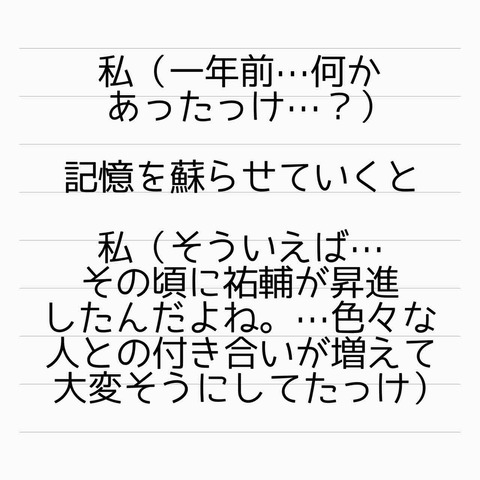 私（一年前…何か
あったっけ…？）
記憶を蘇らせていくと
私（そういえば…
その頃に祐輔が昇進
したんだよね。…色々な
人との付き合いが増えて
大変そうにしてたっけ）